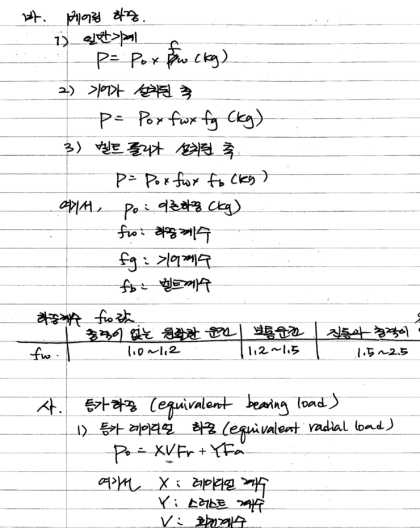 바. 베어링 하중.
1) 일반기계
P = Po × fw (kg)
2) 기어가 설치된 축
P = Po × fw × fg (kg)
3) 벨트 풀리가 설치된 축
P = Po × fw × fb (kg)
여기서, Po : 이론하중 (kg)
fw : 하중계수
fg : 기어계수
fb : 벨트계수
하중계수 fw값
충격이 없는 원활한 운전 보통운전 진동과 충격이
fw. 1.0~1.2 1.2~1.5 1.5~2.5
사. 등가하중 (equivalent bearing load)
1) 등가 레이디얼 하중 (equivalent radial load)
Po = XVFr + YFa
여기서 X : 레이디얼 계수
Y : 스러스트 계수
V : 회전계수